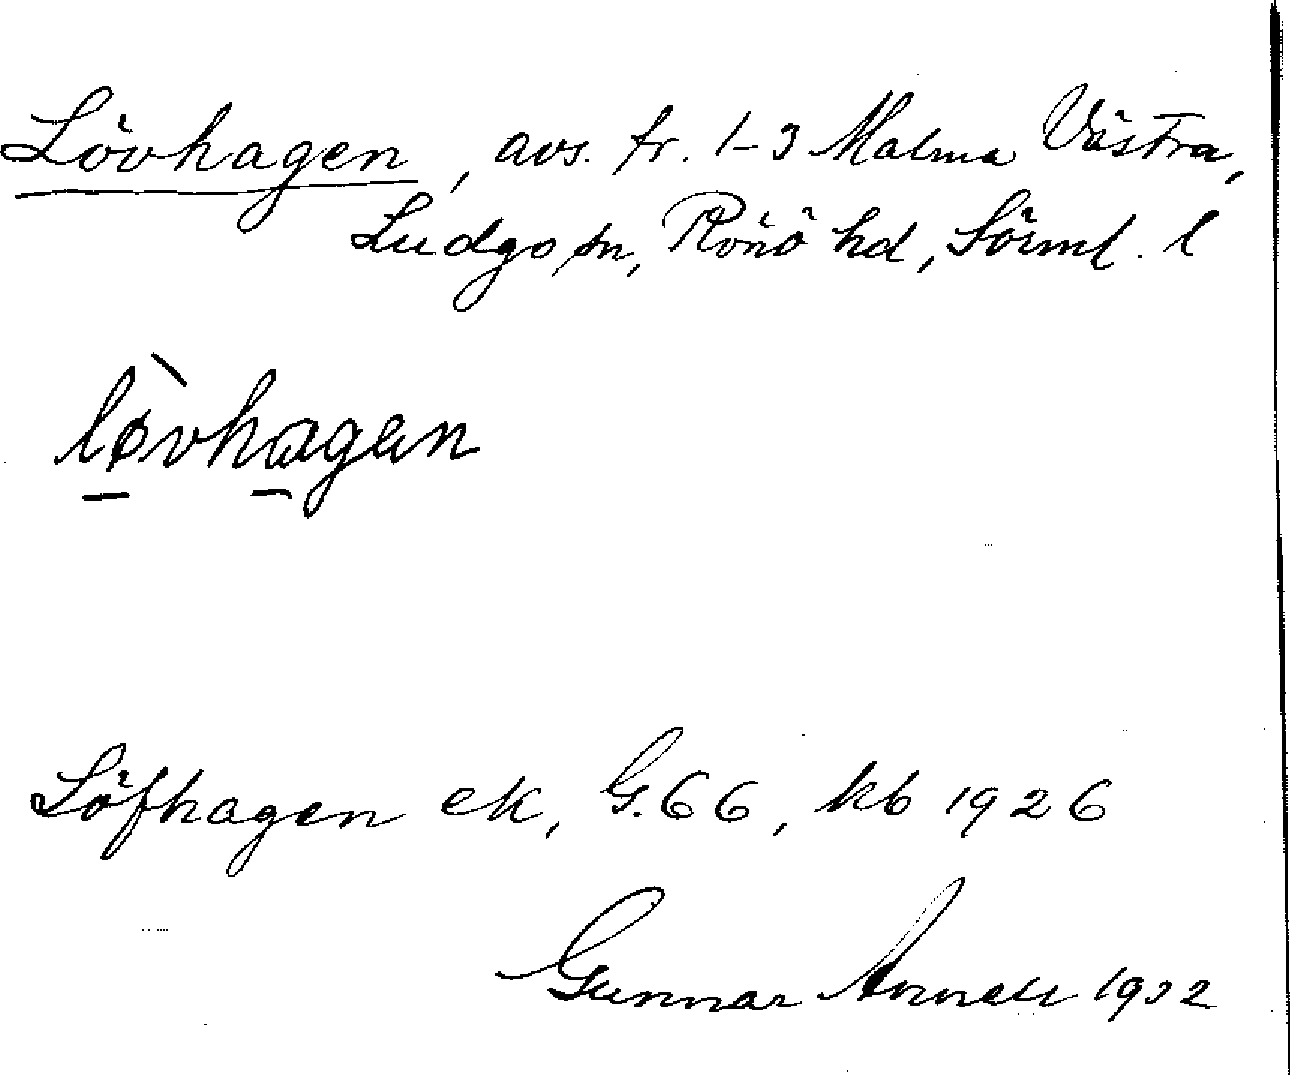 Lövhagen, avs. fr. 1-3 Malma Västra,
Ludgo sn, Rönö hd, Sörml. l
lø̀vhagan
Löfhagen ek, G.66, kb 1926
Gunnar 1932